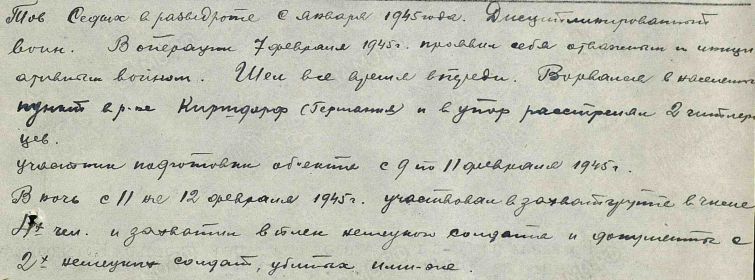 Тов Седых в разведроте с января 1945 года. Дисциплинированный
воин. В операции 7 февраля 1945г. проявил себя отважным и иници
ативным воином. Шел все время впереди. Ворвался в населенный
пункт в р-не Кирщдорф (Германия) и в упор расстрелял 2 гитлеров
цев.
участник подготовки об'екта с 9 по 11 февраля 1945г.
В ночь с 11 на 12 февраля 1945г. участвовал в захватгруппе в числе
4х чел. и захватил в плен немецкого солдата и документы с
2х немецких солдат, убитых ими-же.